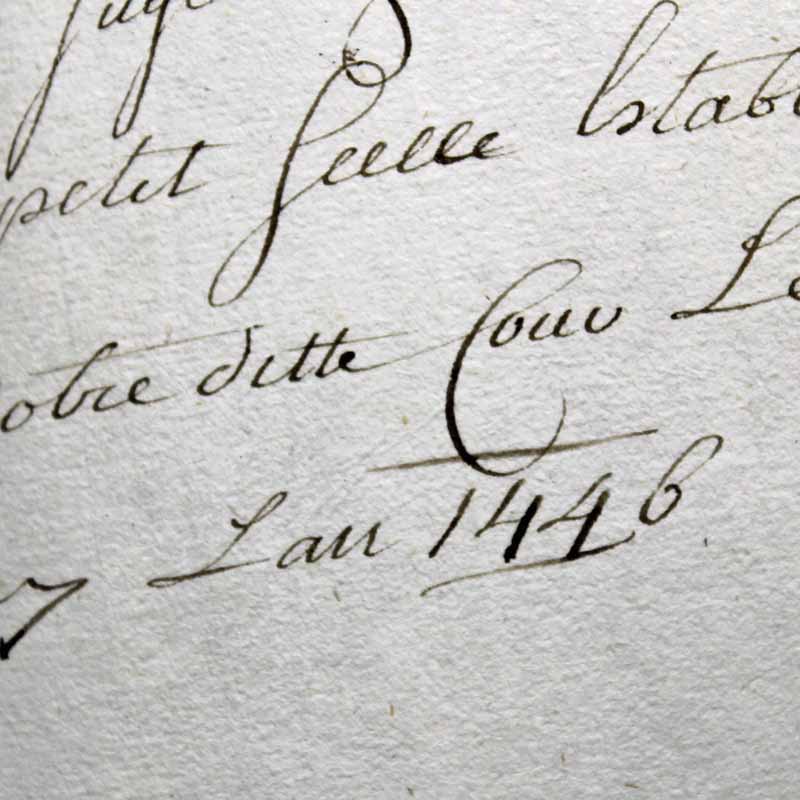 petit Seelle Establ
Notre ditte Cour Le
7 Lan 1446